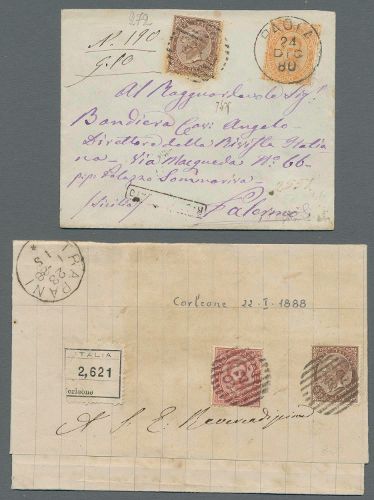 272
N. 190
g. 10
PAOLA
24
DIC
80
Al Ragguardevole Sigr.
Bandiera Cavr Angelo
Direttore della Rivista Italia
na Via Macqueda No 66
pp: Palazzo Sommariva
(Sicilia) Palermo
TRAPANI
Corleone 22-I-1888
ITALIA
2,621
orleone
A S. E. Reverendissima